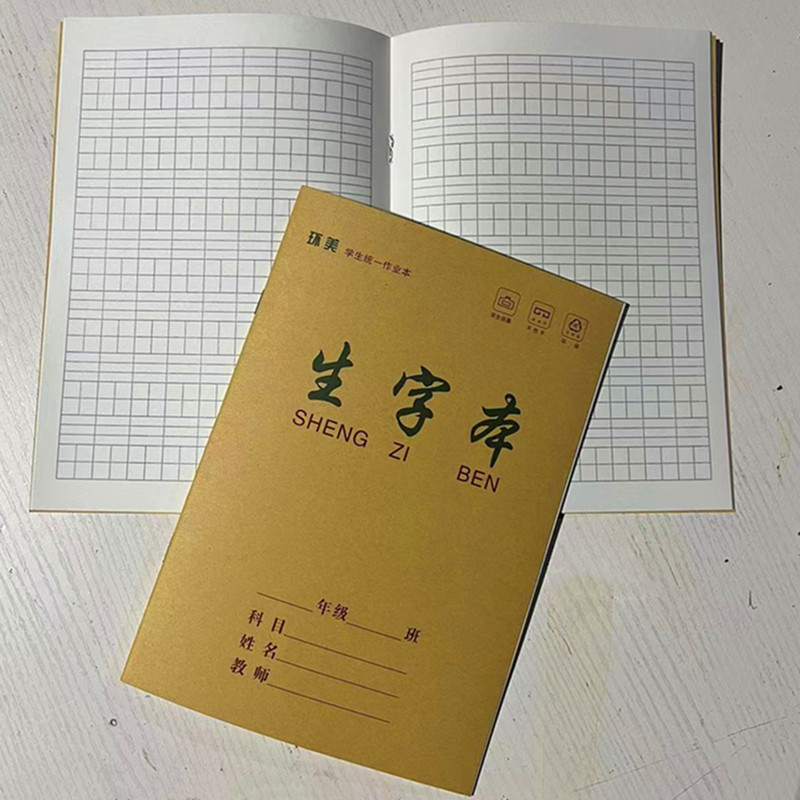 环美 学生统一作业本
生字本
SHENG ZI BEN
年级 班
科目
姓名
教师